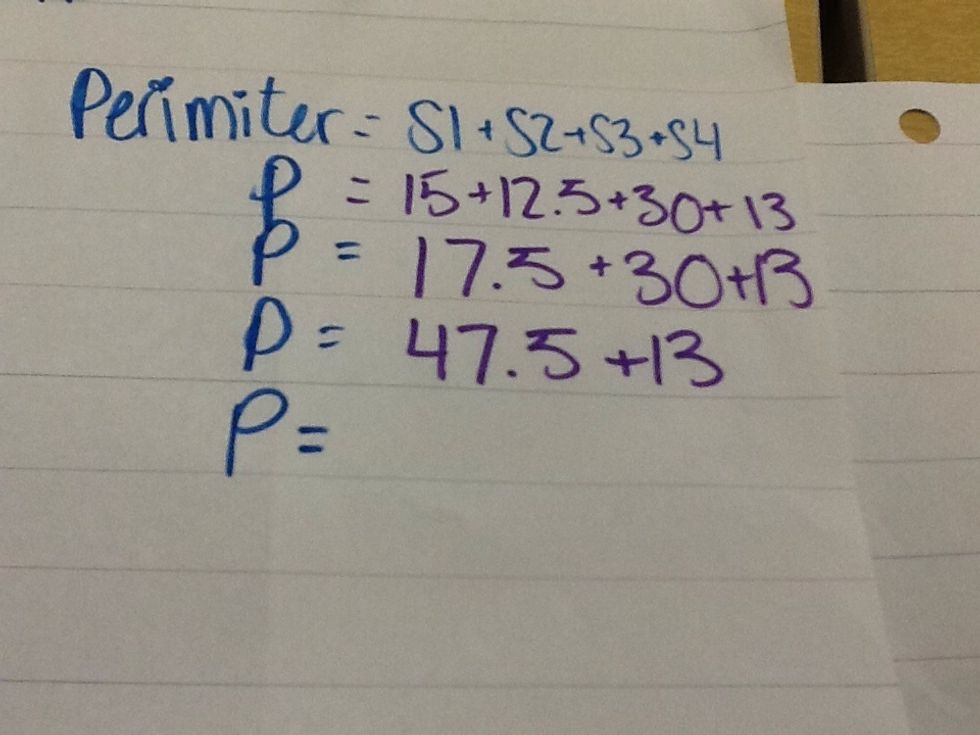 Perimiter = S1+S2+S3+S4
P = 15+12.5+30+13
P = 17.5+30+13
P = 47.5+13
P =